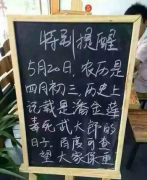 特别提醒
5月20日，农历是
四月初三，历史上
记载是潘金莲
毒死武大郎的
日子，百度可查
望大家保重